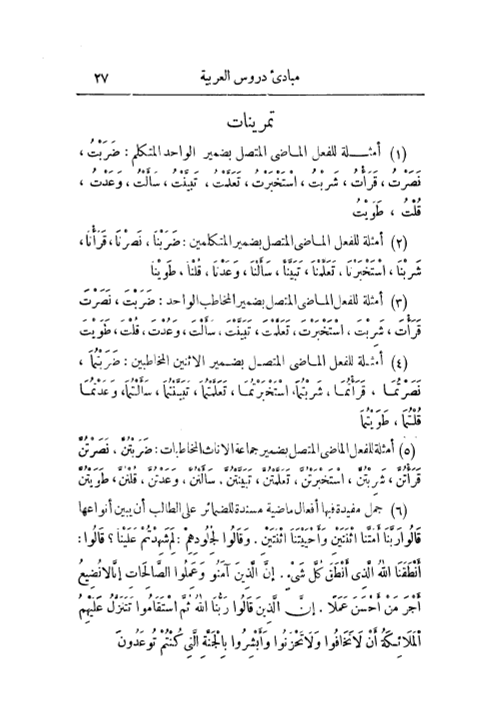 مبادئ دروس العربية ٢٧
تمرينات
(١) أمثلة للفعل الماضى المتصل بضمير الواحد المتكلم : ضَرَبْتُ ،
نَصَرْتُ ، قَرَأْتُ ، شَرِبْتُ ، اسْتَخْبَرْتُ ، تَعَلَّمْتُ ، تَبَيَّنْتُ ، سَأَلْتُ ، وَعَدْتُ ،
قُلْتُ ، طَوَيْتُ
(٢) أمثلة للفعل الماضى المتصل بضمير المتكلمين : ضَرَبْنَا ، نَصَرْنَا ، قَرَأْنَا ،
شَرِبْنَا ، اسْتَخْبَرْنَا ، تَعَلَّمْنَا ، تَبَيَّنَّا ، سَأَلْنَا ، وَعَدْنَا ، قُلْنَا ، طَوَيْنَا
(٣) أمثلة للفعل الماضى المتصل بضمير المخاطب الواحد : ضَرَبْتَ ، نَصَرْتَ
قَرَأْتَ ، شَرِبْتَ ، اسْتَخْبَرْتَ ، تَعَلَّمْتَ ، تَبَيَّنْتَ ، سَأَلْتَ ، وَعَدْتَ ، قُلْتَ ، طَوَيْتَ
(٤) أمثلة للفعل الماضى المتصل بضمير الاثنين المخاطبين : ضَرَبْتُمَا ،
نَصَرْتُمَا ، قَرَأْتُمَا ، شَرِبْتُمَا ، اسْتَخْبَرْتُمَا ، تَعَلَّمْتُمَا ، تَبَيَّنْتُمَا ، سَأَلْتُمَا ، وَعَدْتُمَا
قُلْتُمَا ، طَوَيْتُمَا
(٥) أمثلة للفعل الماضى المتصل بضمير جماعة الاناث المخاطبات : ضَرَبْتُنَّ ، نَصَرْتُنَّ
قَرَأْتُنَّ ، شَرِبْتُنَّ ، اسْتَخْبَرْتُنَّ ، تَعَلَّمْتُنَّ ، تَبَيَّنْتُنَّ ، سَأَلْتُنَّ ، وَعَدْتُنَّ ، قُلْتُنَّ ، طَوَيْتُنَّ
(٦) جمل مفيدة فيها أفعال ماضية مسندة للضمائر على الطالب أن يبين أنواعها
قَالُوا رَبَّنَا أَمَتَّنَا اثْنَتَيْنِ وَأَحْيَيْتَنَا اثْنَتَيْنِ . وَقَالُوا لِجُلُودِهِمْ : لِمَ شَهِدْتُمْ عَلَيْنَا ؟ قَالُوا :
أَنْطَقَنَا اللهُ الَّذِى أَنْطَقَ كُلَّ شَىْءٍ . إِنَّ الَّذِينَ آمَنُو وَعَمِلُوا الصَّالِحَاتِ إِنَّالَانُضِيعُ
أَجْرَ مَنْ أَحْسَنَ عَمَلًا . إِنَّ الَّذِينَ قَالُوا رَبُّنَا اللهُ ثُمَّ اسْتَقَامُوا تَتَنَزَّلُ عَلَيْهِمُ
الْمَلَائِكَةُ أَنْ لَاتَخَافُوا وَلَاتَحْزَنُوا وَأَبْشِرُوا بِالْجَنَّةِ الَّتِى كُنْتُمْ تُوعَدُونَ